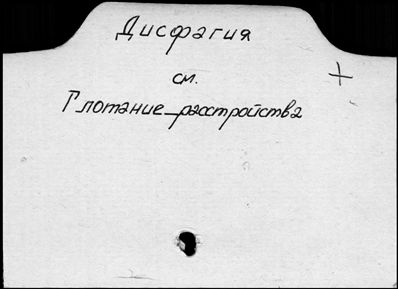 Дисфагия
см. +
Глотание_расстройства